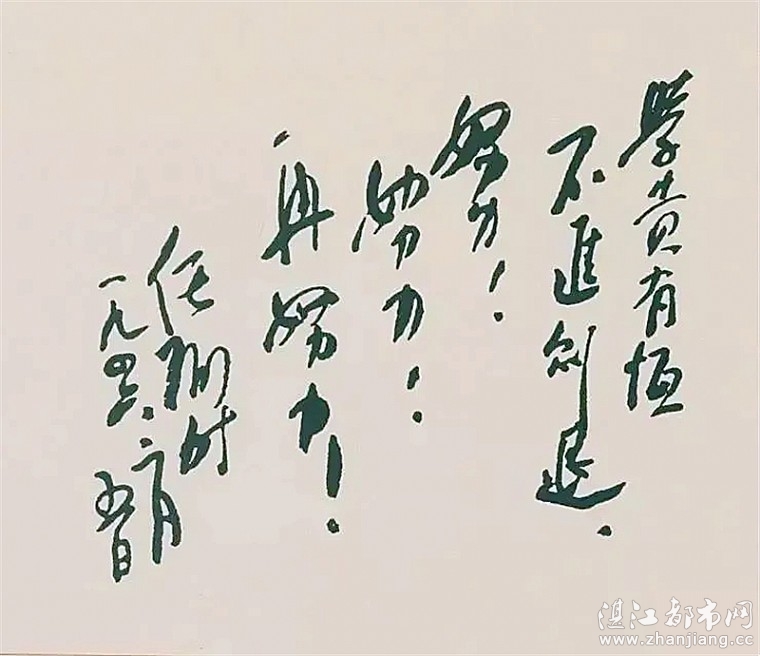 學貴有恒
不進則退.
努力!
努力!
再努力!
任弼时
一九四六.二月
五日
湛江都市网
www.zhanjiang.cc